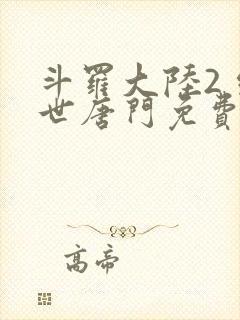 斗羅大陸2
世唐門免費
高帝